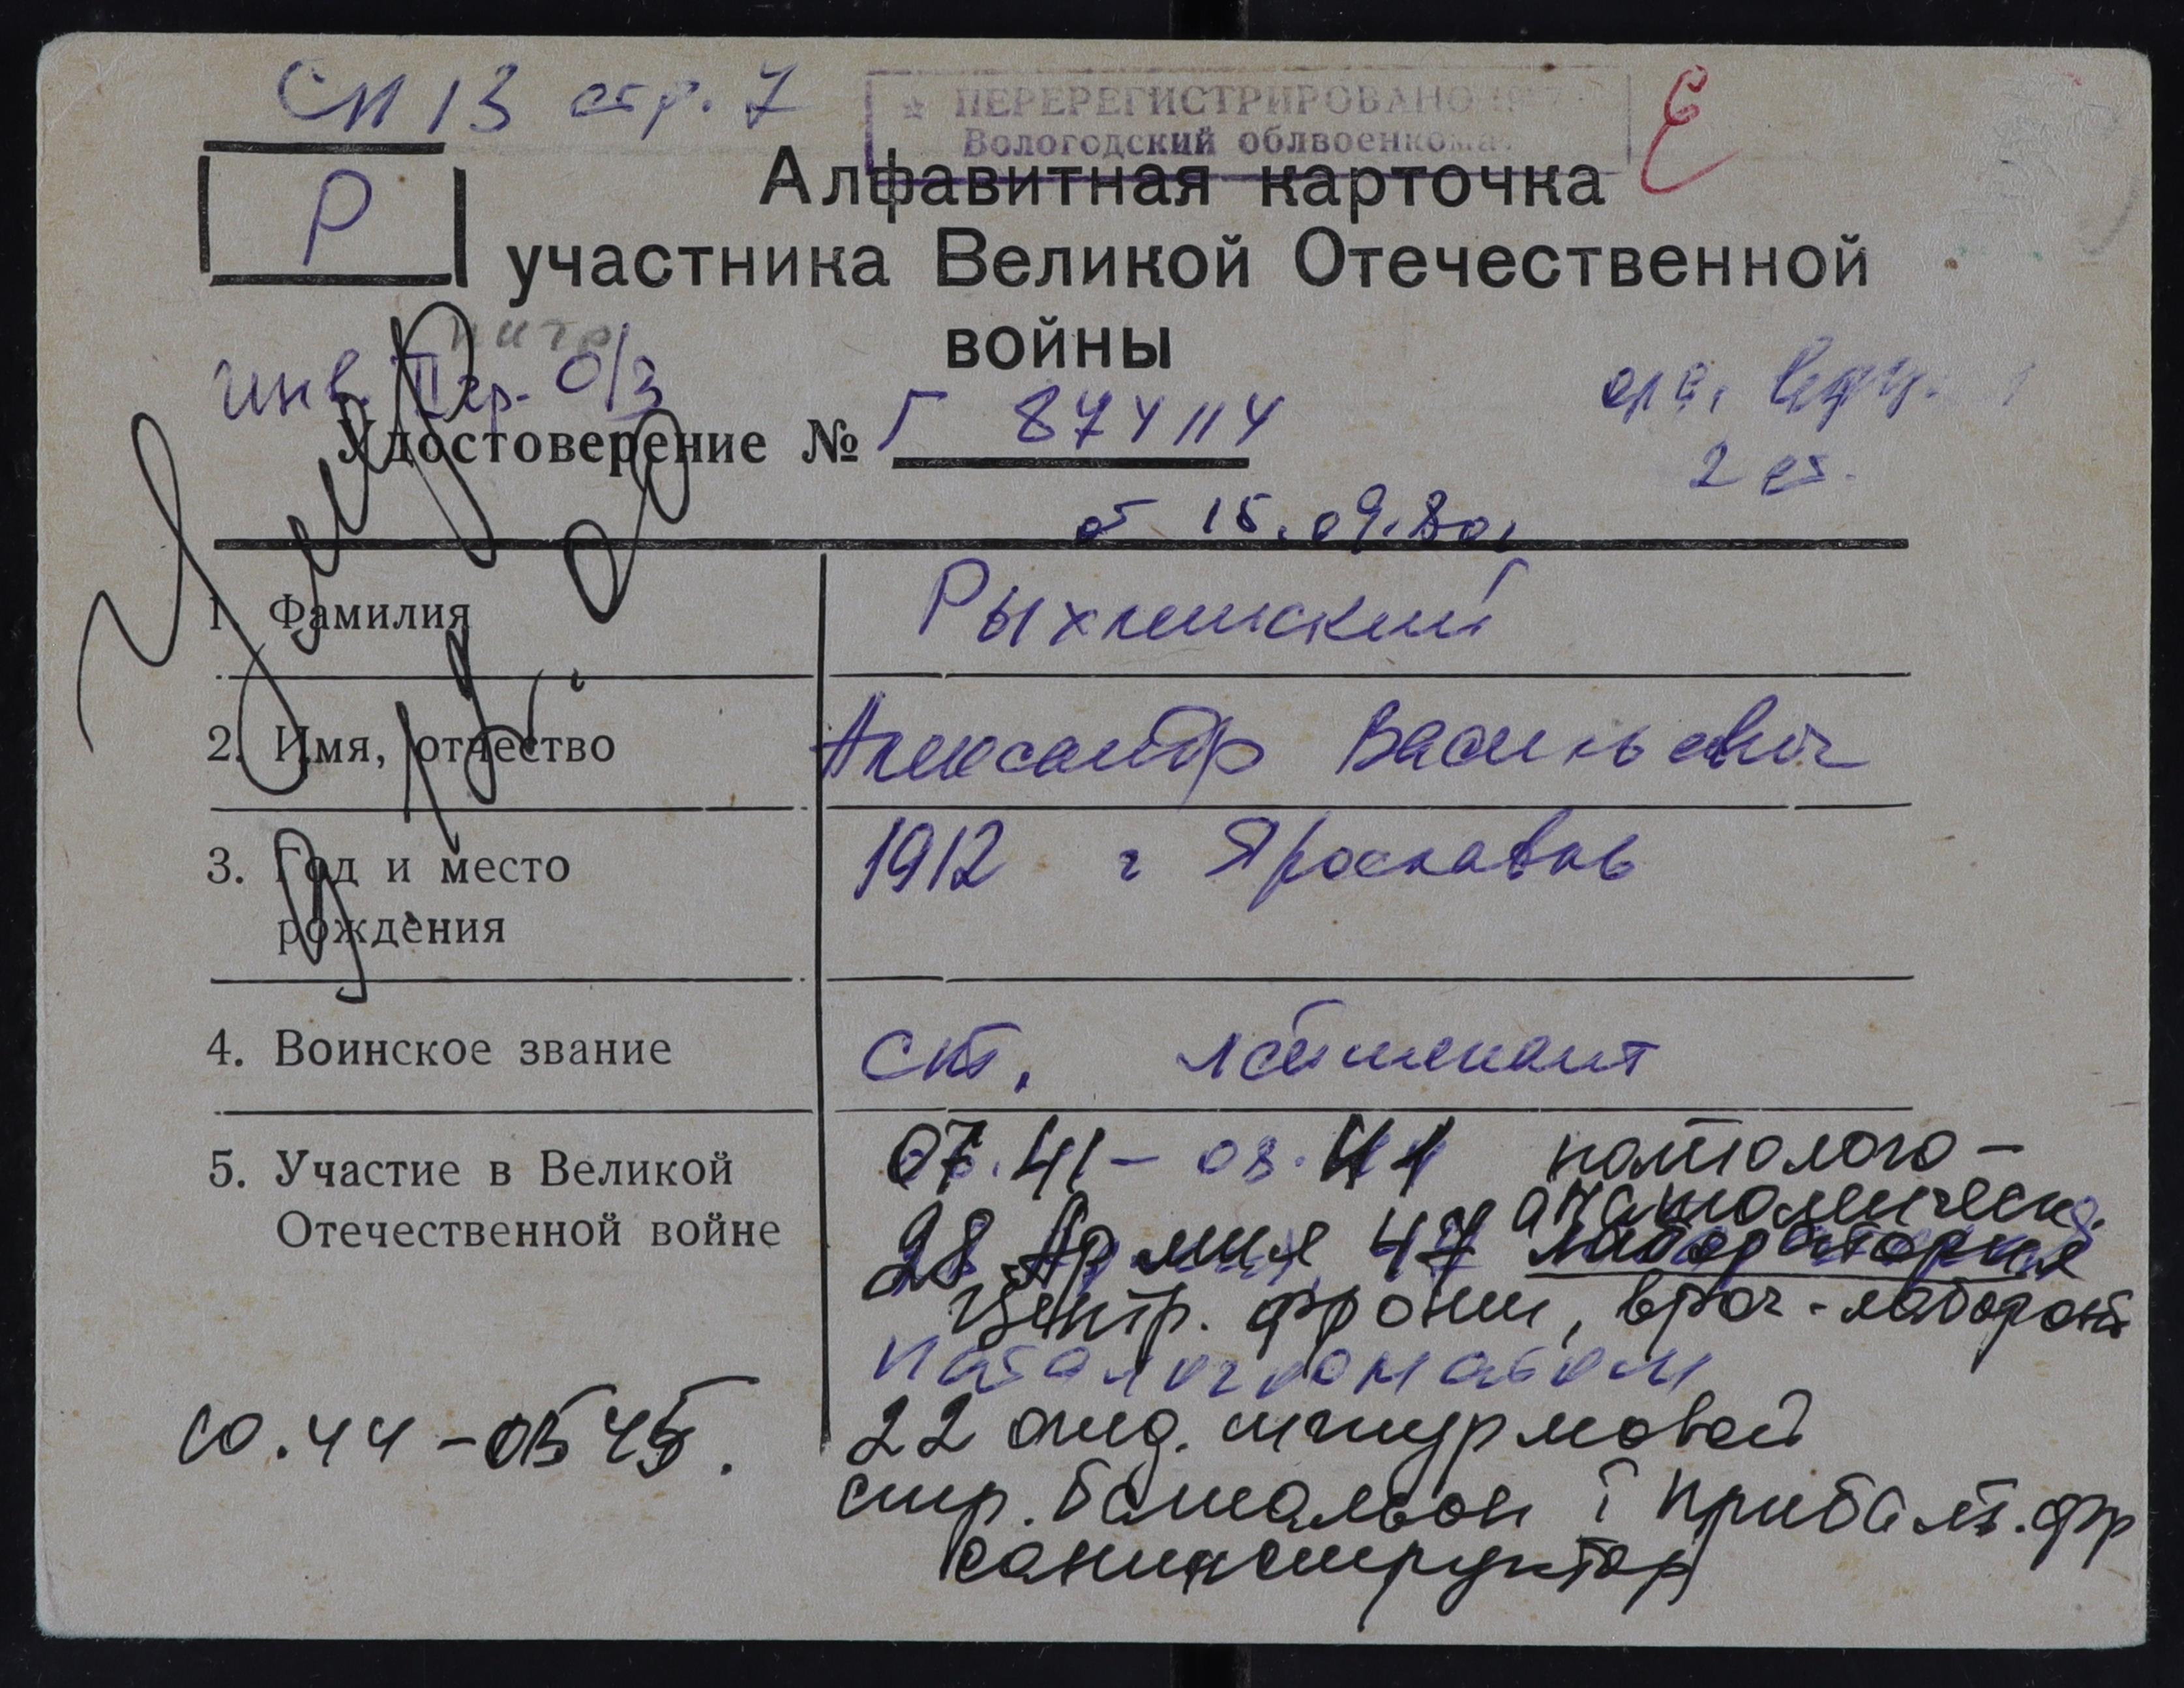 СП 13 стр. 7
ПЕРЕРЕГИСТРИРОВАНО
Вологодский облвоенкомат
Р
Алфавитная карточка
участника Великой Отечественной
войны
инв. II гр. О/З
Удостоверение № Г 874114
2 ст.
от 15.09.80г
1 Фамилия
Рыхлинский
2. Имя, отчество
Александр Васильевич
3. Год и место
рождения
1912 г Ярославль
4. Воинское звание
ст. лейтенант
5. Участие в Великой
Отечественной войне
07.41 – 08.44 патолого-
анатомическ.
28 Армия 47 лаборатория
Центр. фронт, врач-лаборант
10.44 – 05 45.
22 отд. штурмовой
стр. батальон I Прибалт. фр
санинструктор